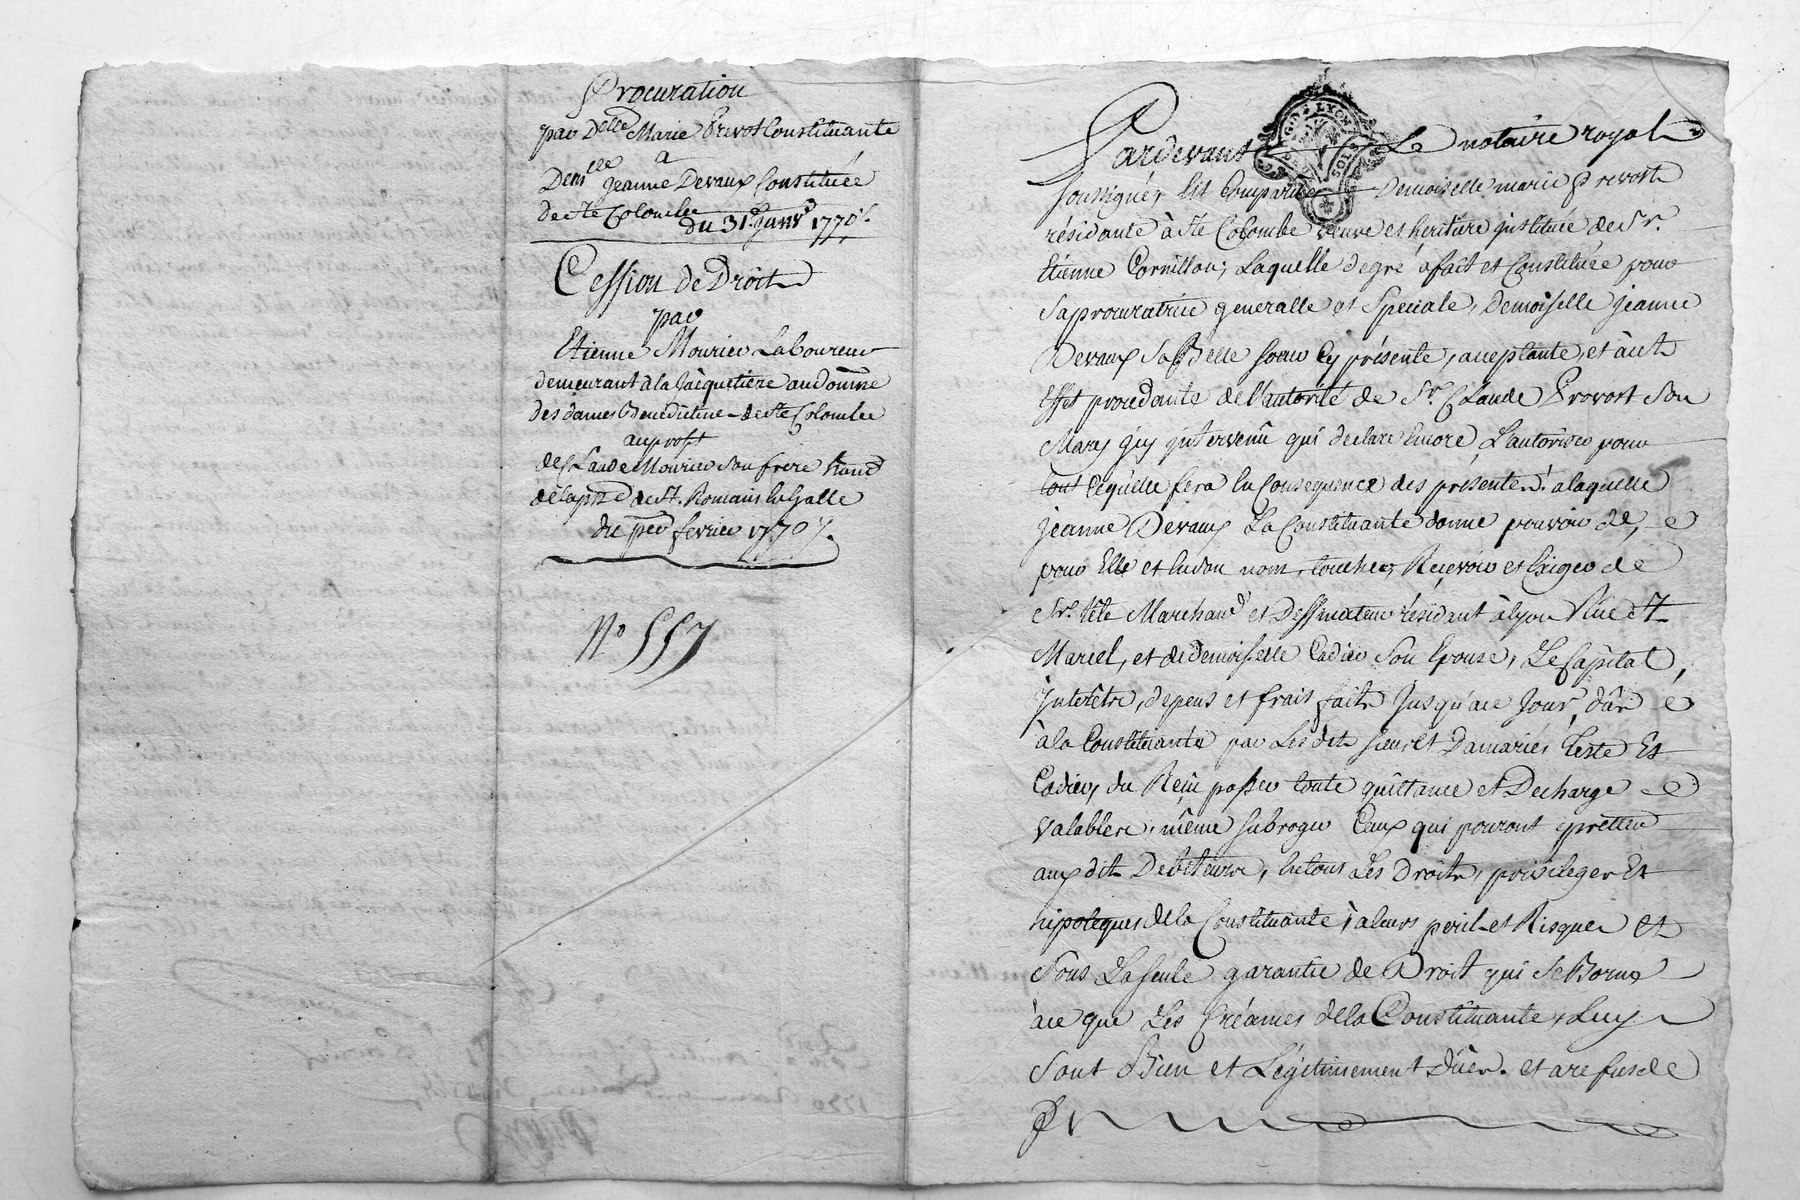 Procuration
par Delle Marie Prevost Constituante
a
Demlle Jeanne Devaux Constituée
de Ste Colombe
du 31e janvr 1770.
Cession de Droits
par
Etienne Mourier Laboureur
demeurant à la Jacquetiere au Domne
des dames Benedictine de Ste Colombe
au profit
de Claude Mourier son frere
de la psse de St. Romain
du per fevrier 1770.
No 557
G. DE LYON
SOLS
Pardevant Le notaire royal
soussigné, fut Comparüe Demoiselle marie Prevost
résidante à Ste Colombe veuve et heritiere jnstituée de Sr.
Etienne Cornillon, Laquelle de gré a fait et Constituée pour
sa procuratrice generalle et Speciale, Demoiselle jeanne
Devaux sa Belle soeur Cy présente, acceptante, et à cet
Effet procedante de l'autorité de Sr. Claude Provost son
Mary jcy jntervenü qui declare Encore L'autoriser pour
tout Ce qu'elle fera En Consequence des présentes. a laquelle
jeanne Devaux La Constituante donne pouvoir de,
pour Elle et En son nom, toucher, Reçevoir et Exiger de
Sr. tête Marchand et Dessinateur résidant à Lyon Rüe St
Marcel, et de demoiselle Cadier son Epouse, Le Capital,
jnterêts, depens et frais faits jusqu'a ce jour, dûs
à la Constituante par Les dits sieur et Dame mariés Teste Et
Cadier, du Reçu passer toute quittance et Decharge
Valables, même subroger Ceux qui pouront pretter
aux dits Debiteurs, En tous Les Droits, privileges Et
hipoteques de la Constituante, a leurs peril et Risques et
Sous La seule garantie de Droit qui se Borne
à ce que Les Créances de la Constituante, Luy
sont Bien et Légitimement Dües. et a refus de